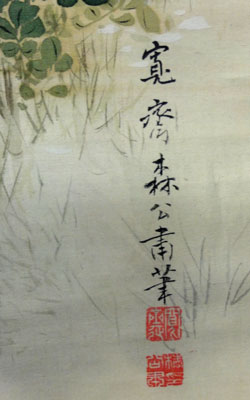 寛齋森公肅筆